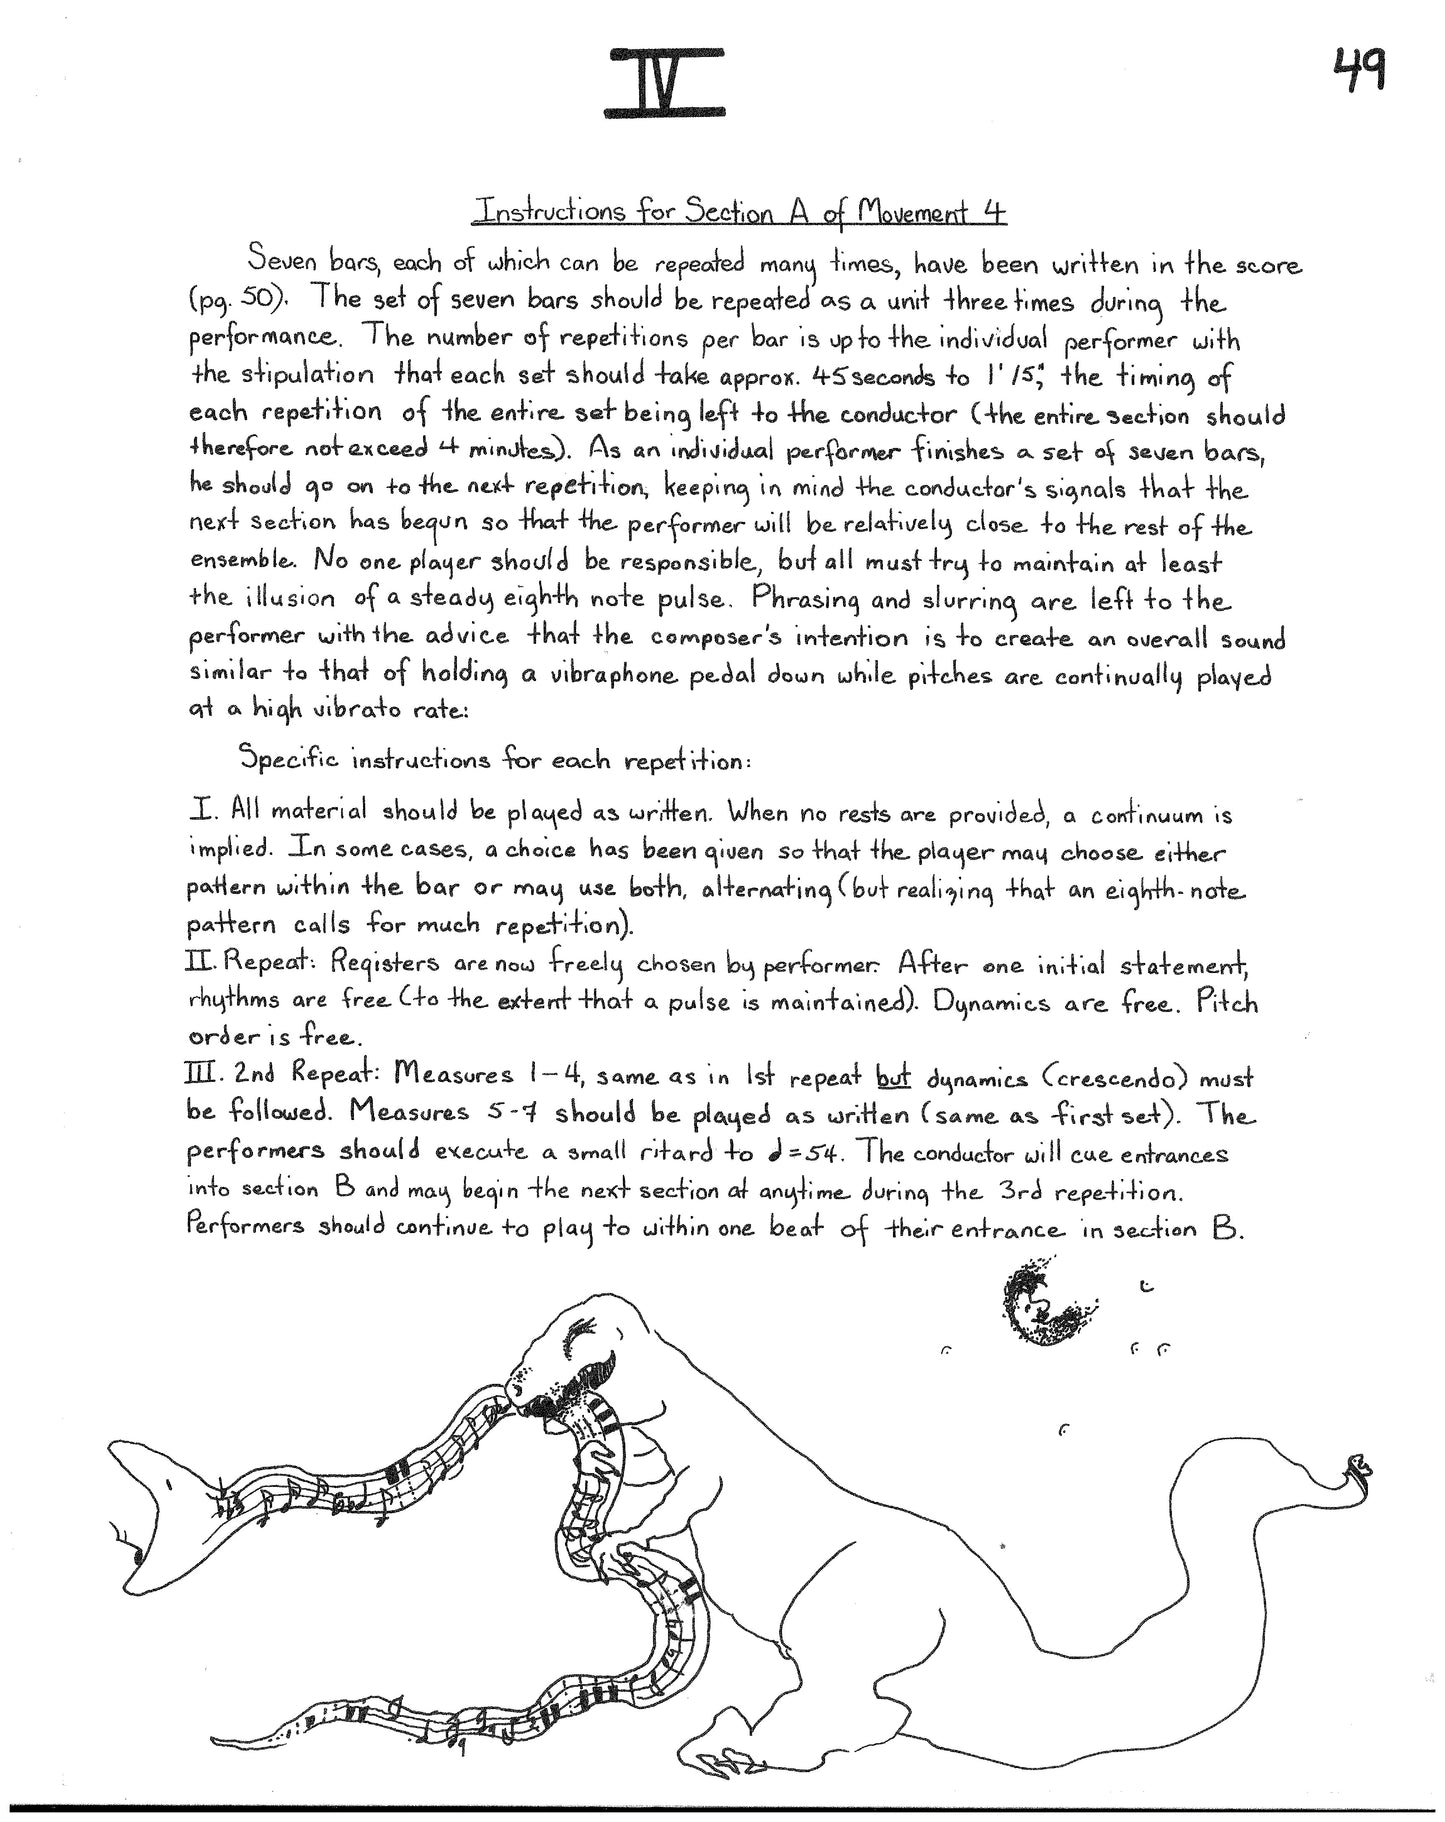 IV
49
Instructions for Section A of Movement 4
Seven bars, each of which can be repeated many times, have been written in the score
(pg. 50). The set of seven bars should be repeated as a unit three times during the
performance. The number of repetitions per bar is up to the individual performer with
the stipulation that each set should take approx. 45 seconds to 1'15", the timing of
each repetition of the entire set being left to the conductor (the entire section should
therefore not exceed 4 minutes). As an individual performer finishes a set of seven bars,
he should go on to the next repetition, keeping in mind the conductor's signals that the
next section has begun so that the performer will be relatively close to the rest of the
ensemble. No one player should be responsible, but all must try to maintain at least
the illusion of a steady eighth note pulse. Phrasing and slurring are left to the
performer with the advice that the composer's intention is to create an overall sound
similar to that of holding a vibraphone pedal down while pitches are continually played
at a high vibrato rate:
Specific instructions for each repetition:
I. All material should be played as written. When no rests are provided, a continuum is
implied. In some cases, a choice has been given so that the player may choose either
pattern within the bar or may use both, alternating (but realizing that an eighth-note
pattern calls for much repetition).
II. Repeat: Registers are now freely chosen by performer. After one initial statement,
rhythms are free (to the extent that a pulse is maintained). Dynamics are free. Pitch
order is free.
III. 2nd Repeat: Measures 1-4, same as in 1st repeat but dynamics (crescendo) must
be followed. Measures 5-7 should be played as written (same as first set). The
performers should execute a small ritard to ♩=54. The conductor will cue entrances
into section B and may begin the next section at anytime during the 3rd repetition.
Performers should continue to play to within one beat of their entrance in section B.